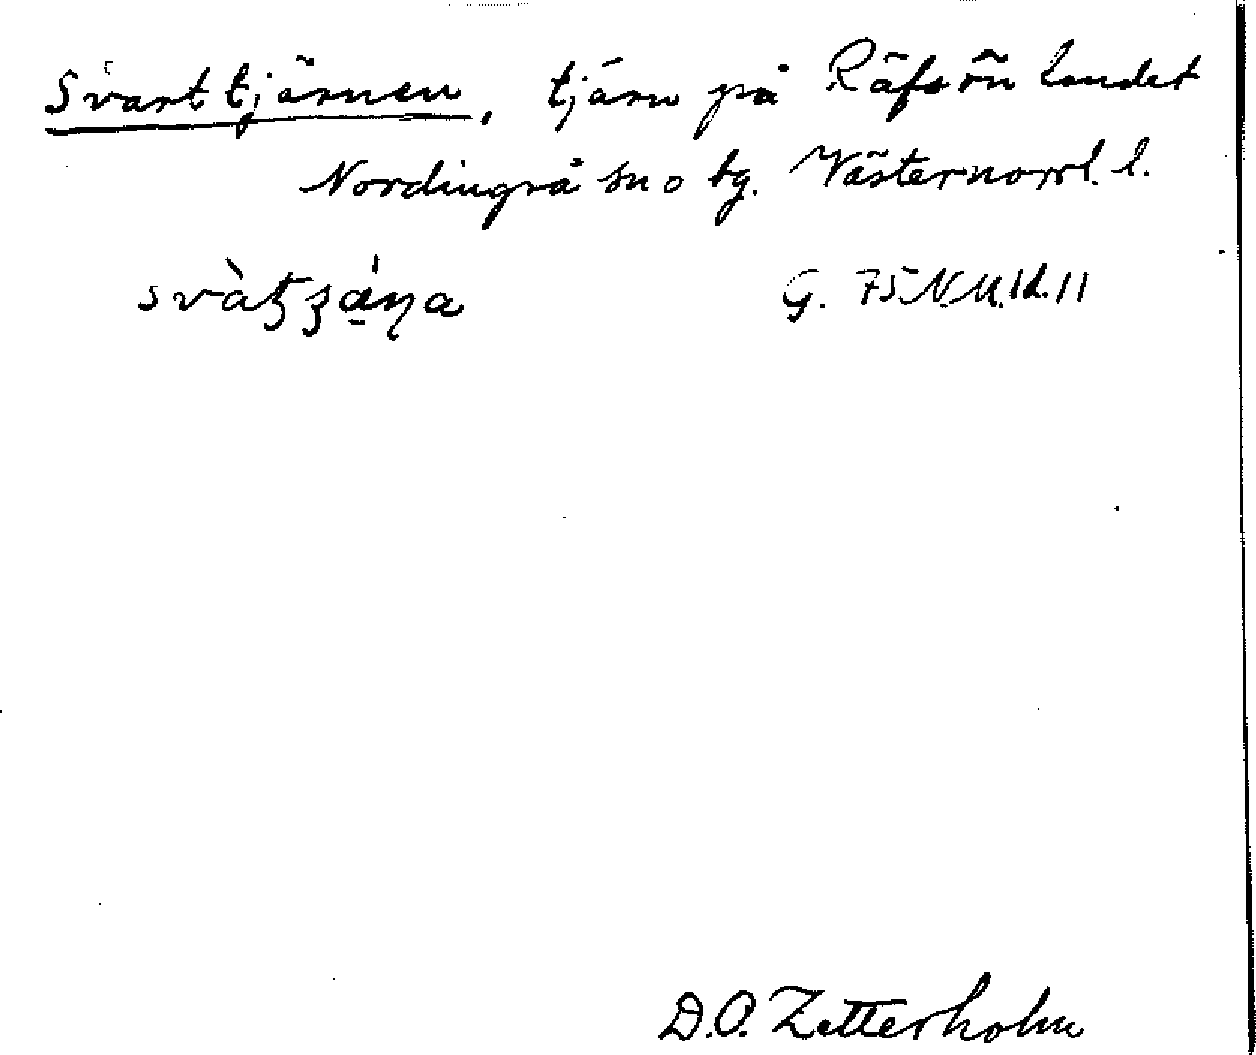 Svarttjärnen, tjärn på Räfsön landet
Nordingrå sn o tg. Västernorrl. l.
G. 75 NV
D.O. Zetterholm